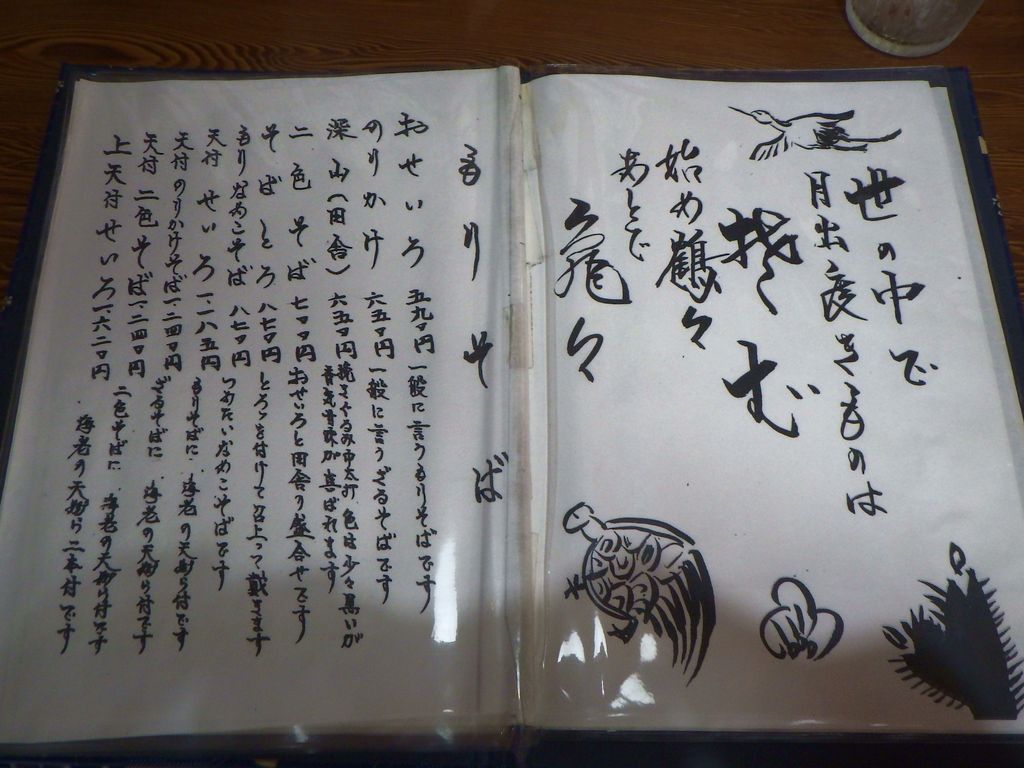 世の中で
月出度きものは
そば
始め鶴々
あとで
亀々
もりそば
おせいろ 五九〇円 一般に言うもりそばです
のりかけ 六五〇円 一般に言うざるそばです
深山(田舎) 六五〇円 挽きぐるみ中太打 色は少々黒いが
喜ばれます
二色そば 七〇〇円 おせいろと田舎の盛合せです
そばとろ 八七〇円 とろろを付けて召上って戴きます
もりなめこそば 八七〇円 つめたいなめこそばです
天付せいろ 一、一八五円 もりそばに 海老の天ぷら付です
天付のりかけそば 一、二四〇円 ざるそばに 海老の天ぷら付です
天付二色そば 一、二四〇円 二色そばに 海老の天ぷら付です
上天付せいろ 一、六二〇円 海老の天ぷら二本付です